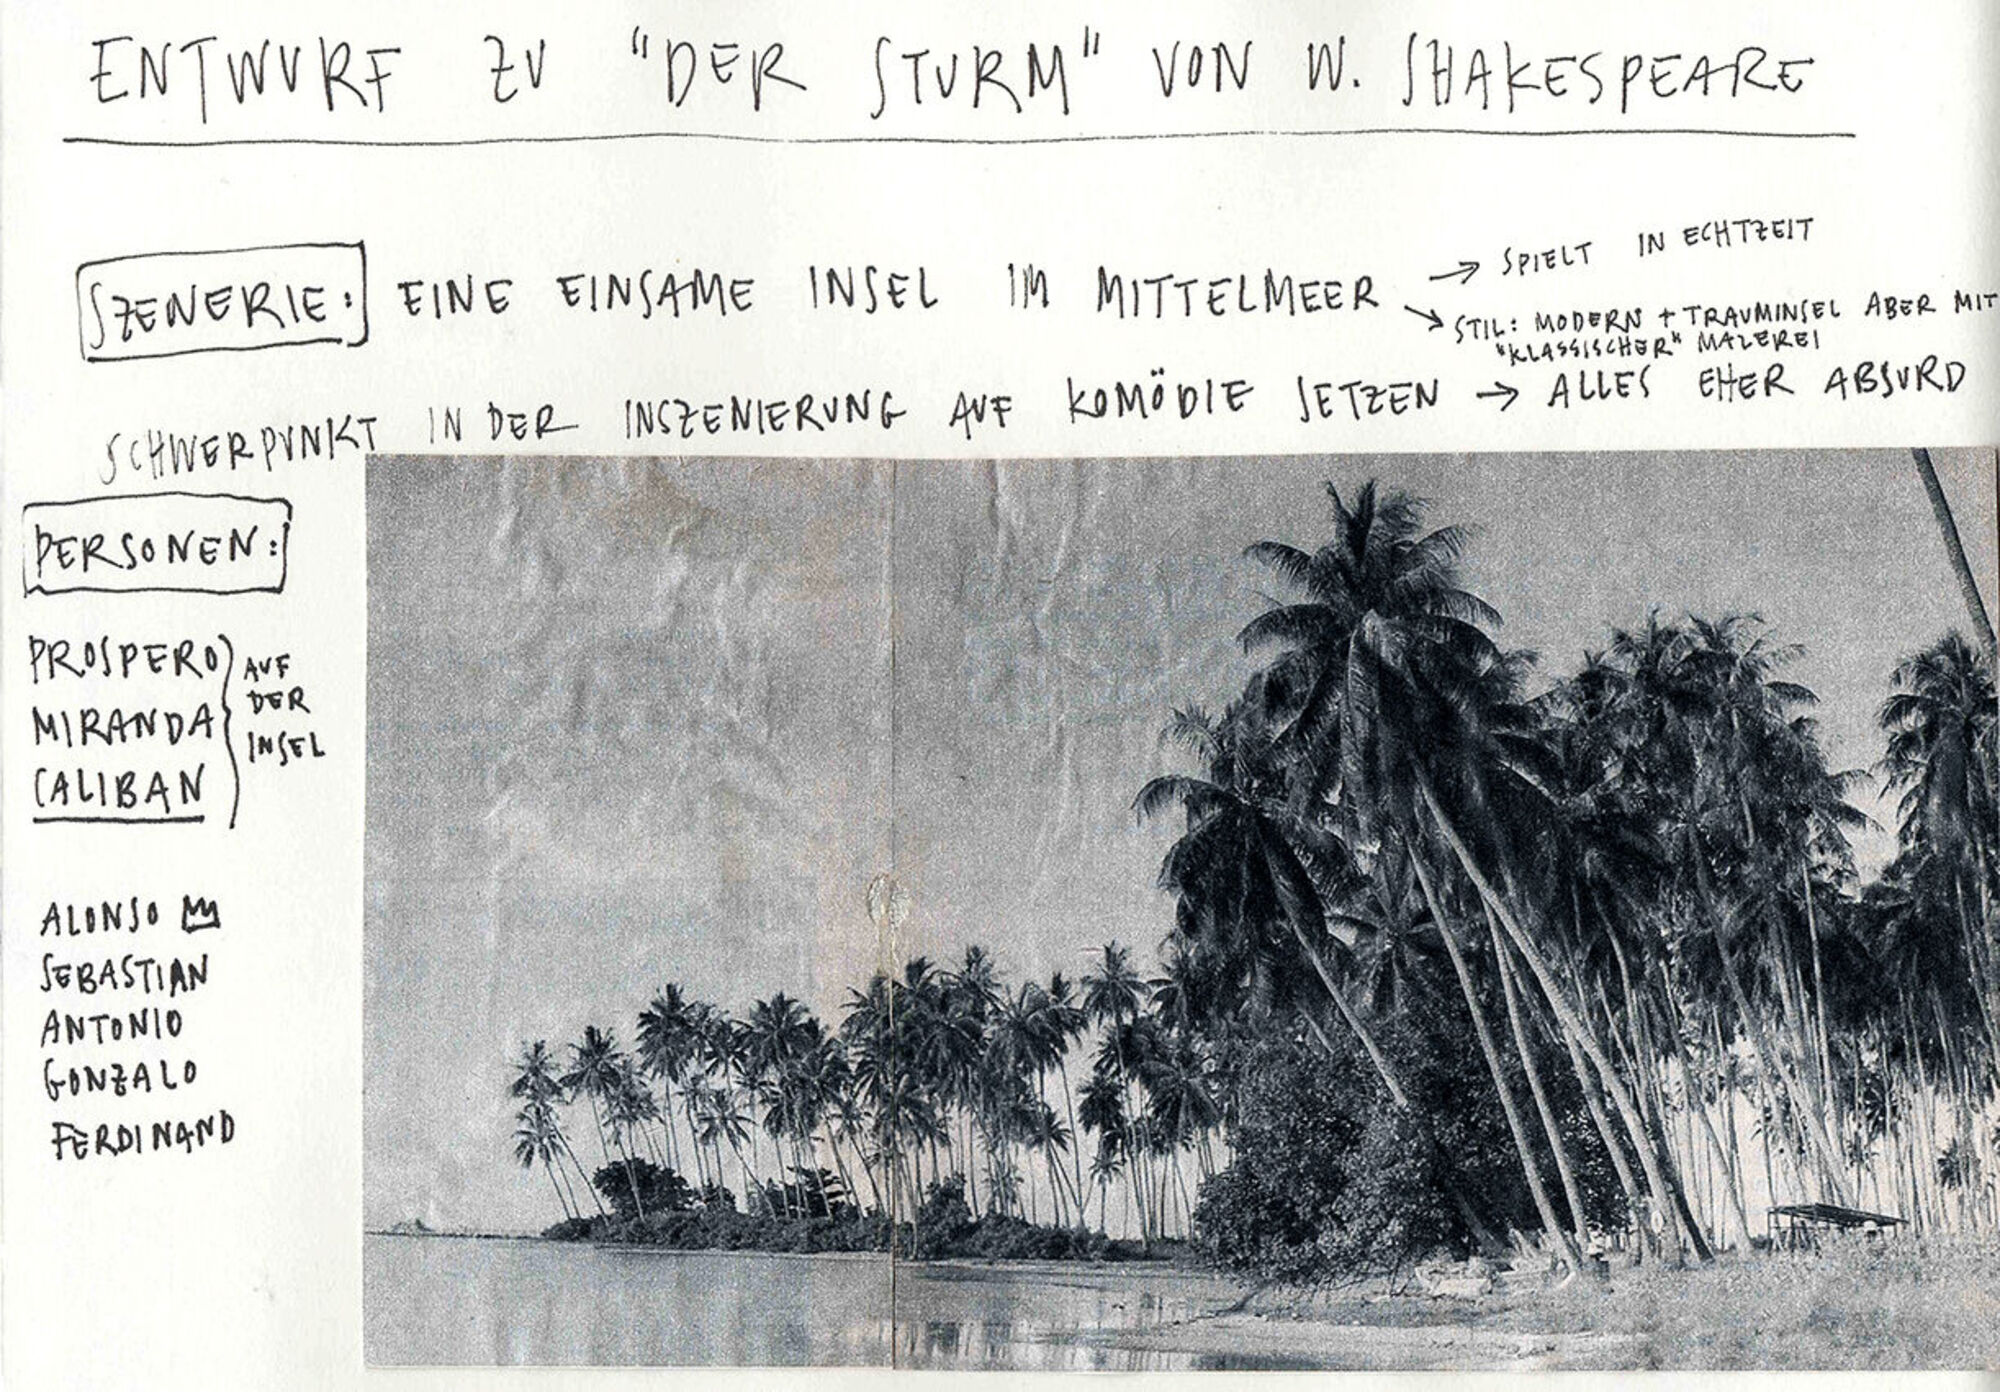 ENTWURF ZU "DER STURM" VON W. SHAKESPEARE
SZENERIE: EINE EINSAME INSEL IM MITTELMEER
→ SPIELT IN ECHTZEIT
→ STIL: MODERN + TRAUMINSEL ABER MIT
"KLASSISCHER" MALEREI
SCHWERPUNKT IN DER INSZENIERUNG AUF KOMÖDIE SETZEN → ALLES EHER ABSURD
PERSONEN:
PROSPERO
MIRANDA
CALIBAN
AUF
DER
INSEL
ALONSO
SEBASTIAN
ANTONIO
GONZALO
FERDINAND